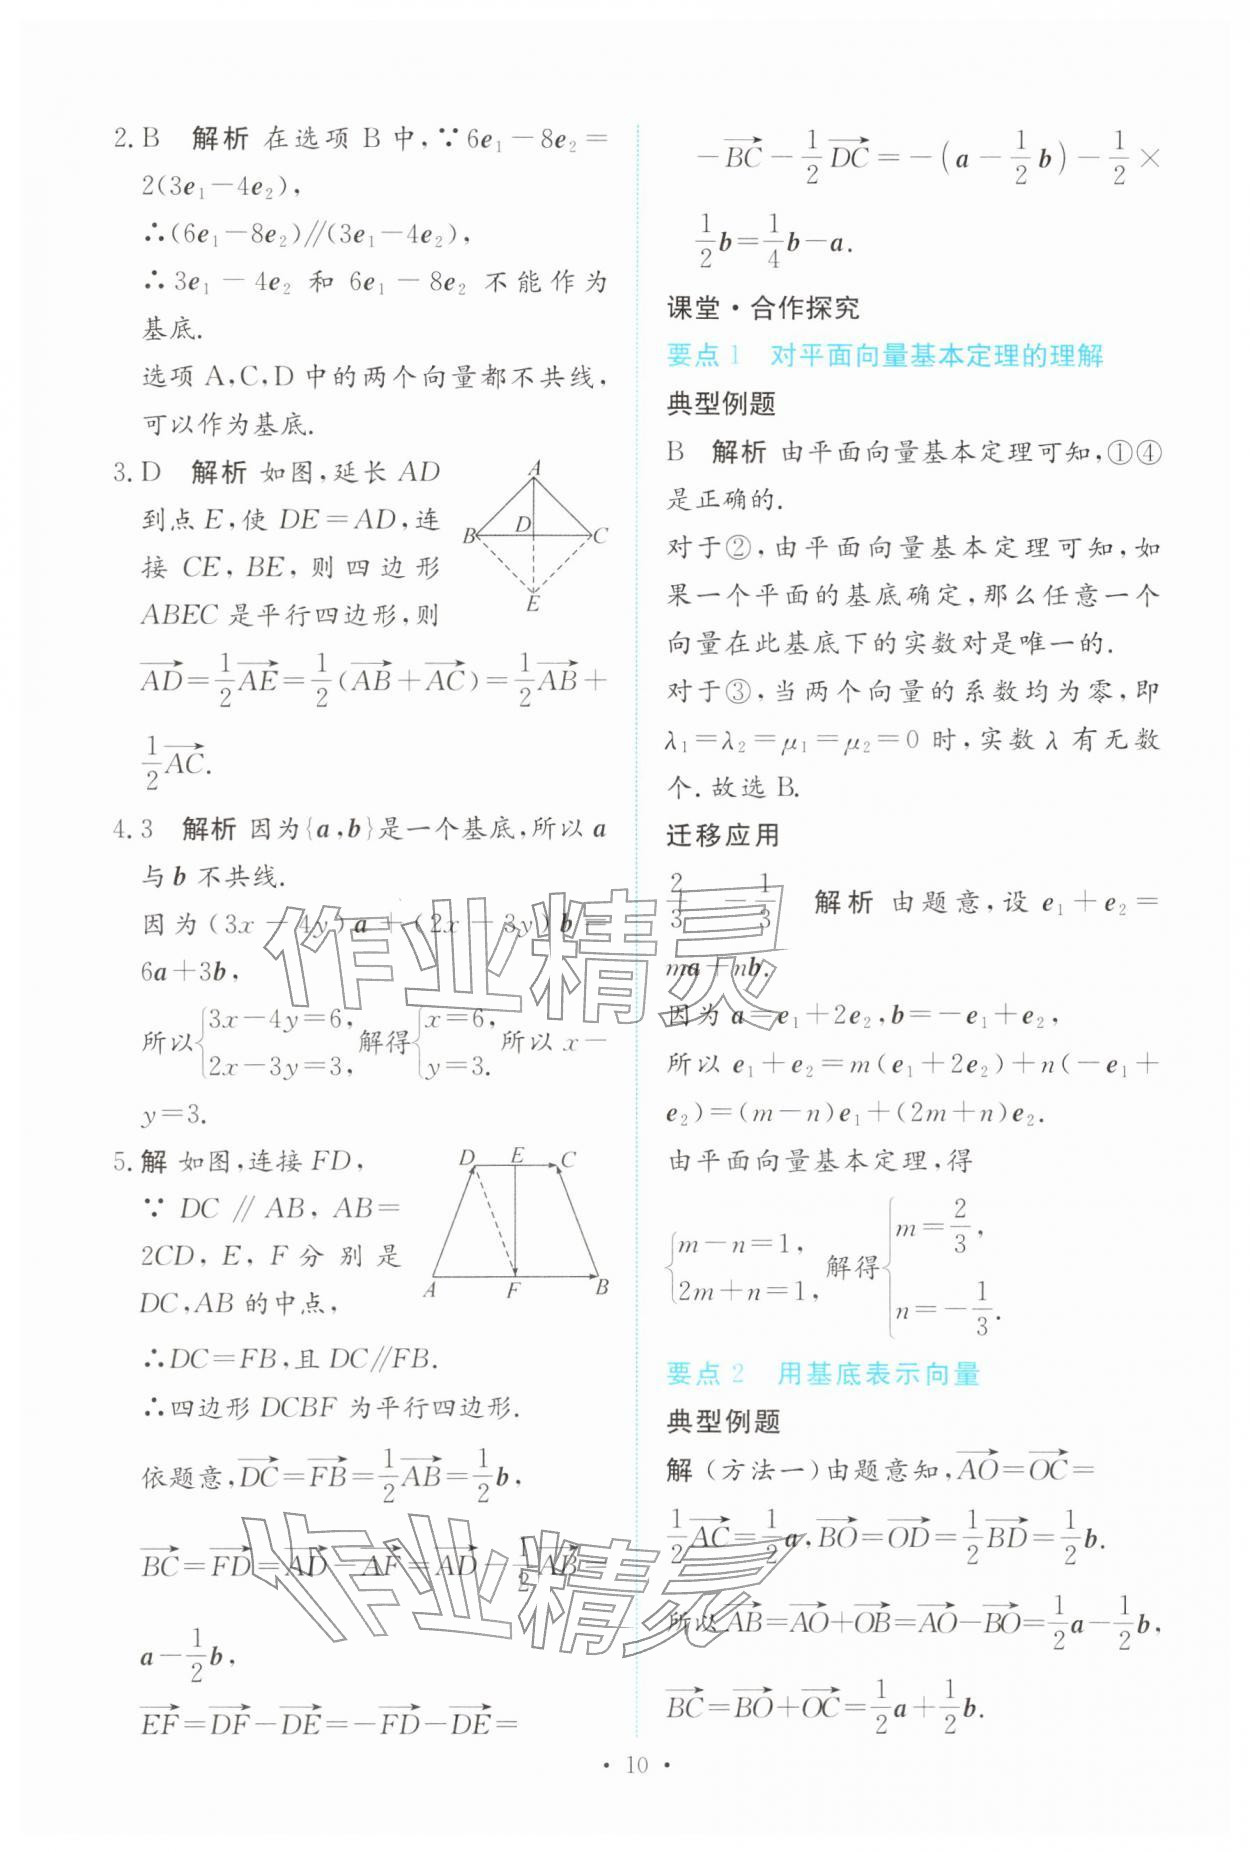 2. B 解析 在选项 B 中,∵6e₁－8e₂＝
2(3e₁－4e₂),
∴(6e₁－8e₂)∥(3e₁－4e₂),
∴3e₁－4e₂ 和 6e₁－8e₂ 不能作为
基底.
选项 A,C,D 中的两个向量都不共线,
可以作为基底.
3. D 解析 如图,延长 AD
到点 E,使 DE＝AD,连
接 CE, BE, 则四边形
ABEC 是平行四边形,则
A
B
D
C
E
\overrightarrow{AD}＝\frac{1}{2}\overrightarrow{AE}＝\frac{1}{2}(\overrightarrow{AB}＋\overrightarrow{AC})＝\frac{1}{2}\overrightarrow{AB}＋
\frac{1}{2}\overrightarrow{AC}.
4. 3 解析 因为{a,b}是一个基底,所以 a
与 b 不共线.
因为(3x－4y)a＋(2x－3y)b＝
6a＋3b,
所以{3x－4y＝6, 2x－3y＝3, 解得{x＝6, y＝3. 所以 x－
y＝3.
5. 解 如图,连接 FD,
∵ DC∥AB, AB＝
2CD, E, F 分别是
DC,AB 的中点,
D E C
A F B
∴DC＝FB,且 DC∥FB.
∴四边形 DCBF 为平行四边形.
依题意,\overrightarrow{DC}＝\overrightarrow{FB}＝\frac{1}{2}\overrightarrow{AB}＝\frac{1}{2}b,
\overrightarrow{BC}＝\overrightarrow{FD}＝\overrightarrow{AD}－\overrightarrow{AF}＝\overrightarrow{AD}－\frac{1}{2}\overrightarrow{AB}＝
a－\frac{1}{2}b,
\overrightarrow{EF}＝\overrightarrow{DF}－\overrightarrow{DE}＝－\overrightarrow{FD}－\overrightarrow{DE}＝
－\overrightarrow{BC}－\frac{1}{2}\overrightarrow{DC}＝－(a－\frac{1}{2}b)－\frac{1}{2}×
\frac{1}{2}b＝\frac{1}{4}b－a.
课堂·合作探究
要点 1 对平面向量基本定理的理解
典型例题
B 解析 由平面向量基本定理可知,①④
是正确的.
对于②,由平面向量基本定理可知,如
果一个平面的基底确定,那么任意一个
向量在此基底下的实数对是唯一的.
对于③,当两个向量的系数均为零,即
λ₁＝λ₂＝μ₁＝μ₂＝0 时,实数 λ 有无数
个.故选 B.
迁移应用
\frac{2}{3} －\frac{1}{3} 解析 由题意,设 e₁＋e₂＝
ma＋nb.
因为 a＝e₁＋2e₂,b＝－e₁＋e₂,
所以 e₁＋e₂＝m(e₁＋2e₂)＋n(－e₁＋
e₂)＝(m－n)e₁＋(2m＋n)e₂.
由平面向量基本定理,得
{m－n＝1, 2m＋n＝1, 解得{m＝\frac{2}{3}, n＝－\frac{1}{3}.
要点 2 用基底表示向量
典型例题
解 (方法一)由题意知,\overrightarrow{AO}＝\overrightarrow{OC}＝
\frac{1}{2}\overrightarrow{AC}＝\frac{1}{2}a,\overrightarrow{BO}＝\overrightarrow{OD}＝\frac{1}{2}\overrightarrow{BD}＝\frac{1}{2}b.
所以\overrightarrow{AB}＝\overrightarrow{AO}＋\overrightarrow{OB}＝\overrightarrow{AO}－\overrightarrow{BO}＝\frac{1}{2}a－\frac{1}{2}b,
\overrightarrow{BC}＝\overrightarrow{BO}＋\overrightarrow{OC}＝\frac{1}{2}a＋\frac{1}{2}b.
作业精灵
作业精灵
· 10 ·